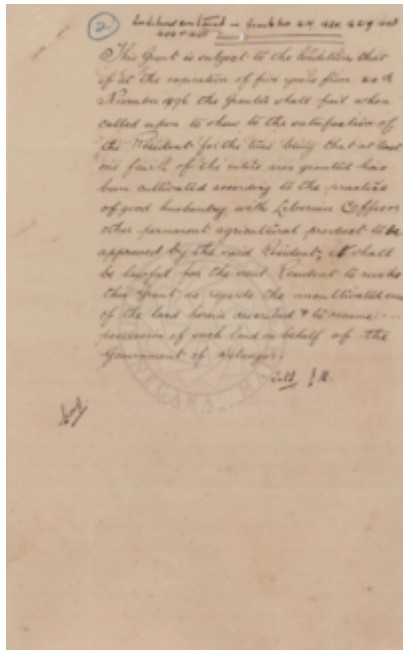 2
Conditions contained in Grants Nos
This Grant is subject to the condition that
if at the expiration of five years from 20th
November 1896 the Grantee shall fail when
called upon to show to the satisfaction of
the Resident for the time being that at least
one fourth of the entire area granted has
been cultivated according to the practice
of good husbandry, with Liberian Coffee or
other permanent agricultural product to be
approved by the said Resident, it shall
be lawful for the said Resident to revoke
this grant as regards the uncultivated area
of the land herein described & to resume
possession of such land on behalf of the
Government of Selangor.
NEGARA